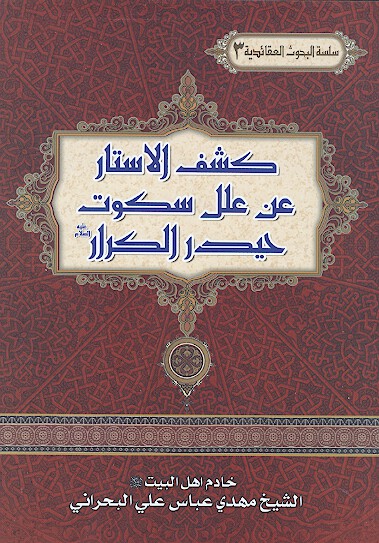 سلسة البحوث العقائدية ٣
كشف الاستار
عن علل سكوت
حيدر الكرار عليه السلام
خادم اهل البيت
الشيخ مهدي عباس علي البحراني